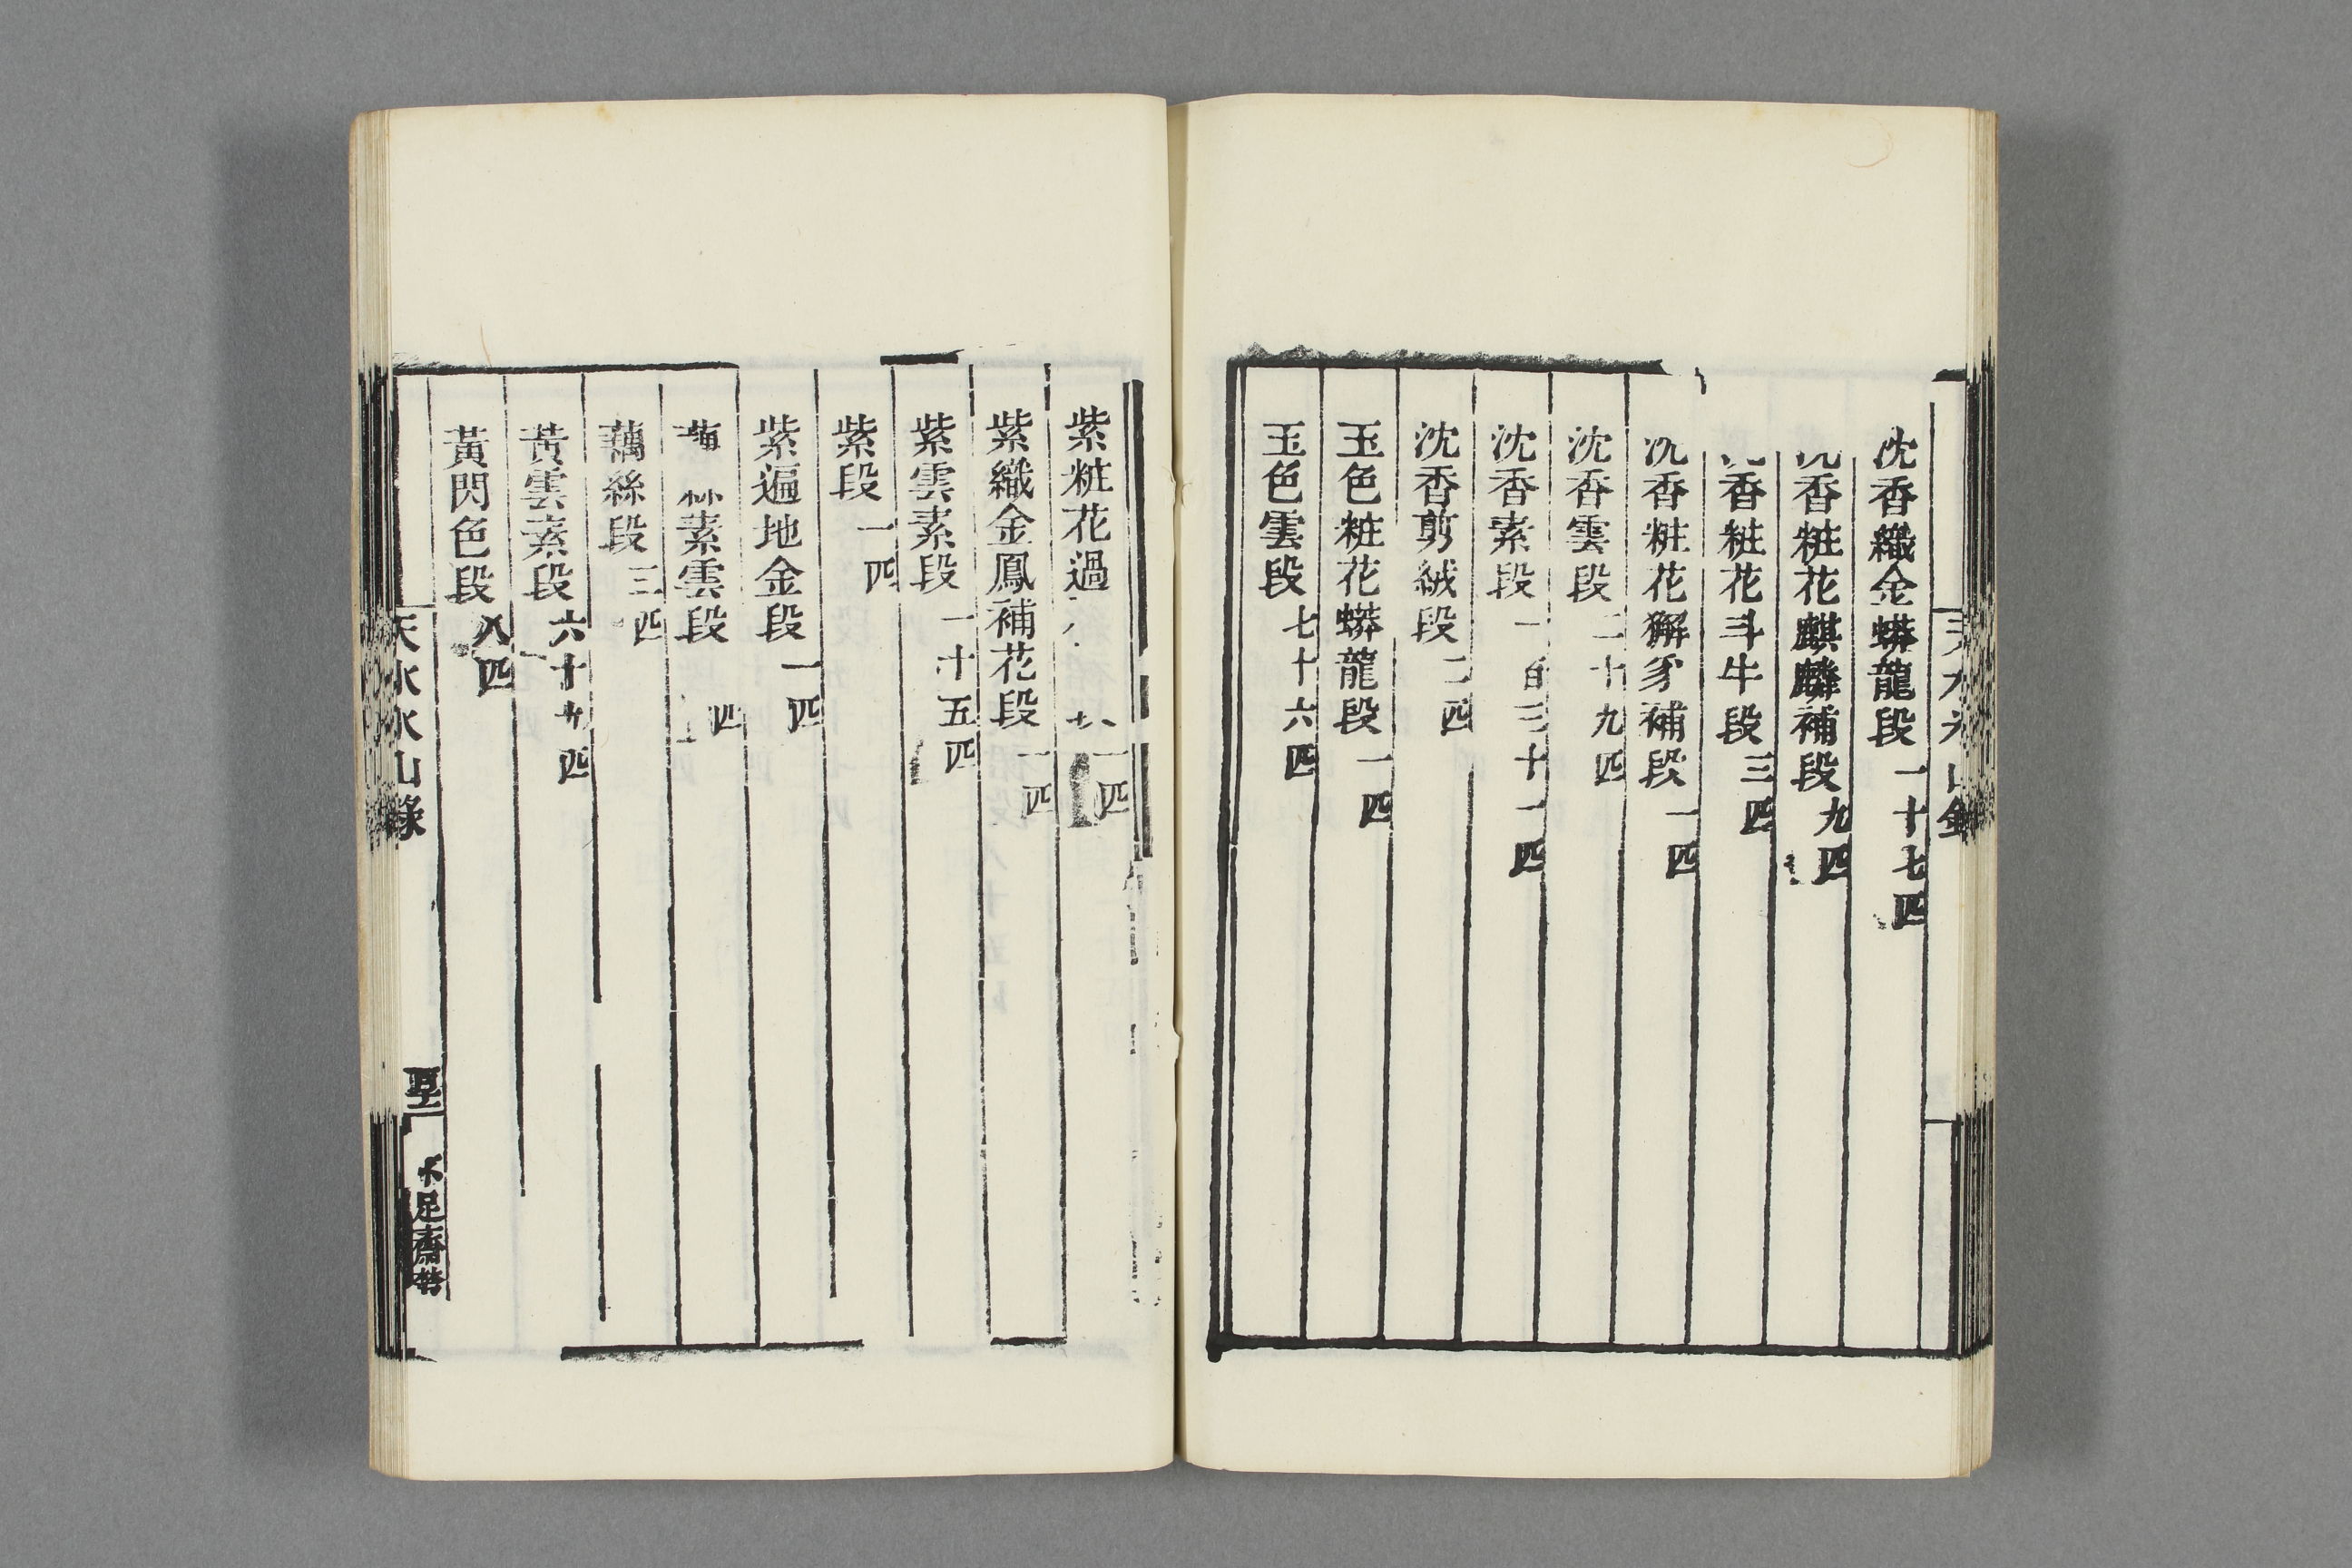 沈香織金蟒龍段一十七匹
香粧花麒麟補段九匹
香粧花斗牛段三匹
沈香粧花獬豸補段一匹
沈香雲段二十九匹
沈香素段一百三十一匹
沈香剪絨段二匹
玉色粧花蟒龍段一匹
玉色雲段七十六匹
紫粧花過一匹
紫織金鳳補花段一匹
紫雲素段一十五匹
紫段一匹
紫遍地金段一匹
素雲段匹
藕絲段三匹
黃雲素段六十九匹
黃閃色段八匹
天水冰山錄
不足齋